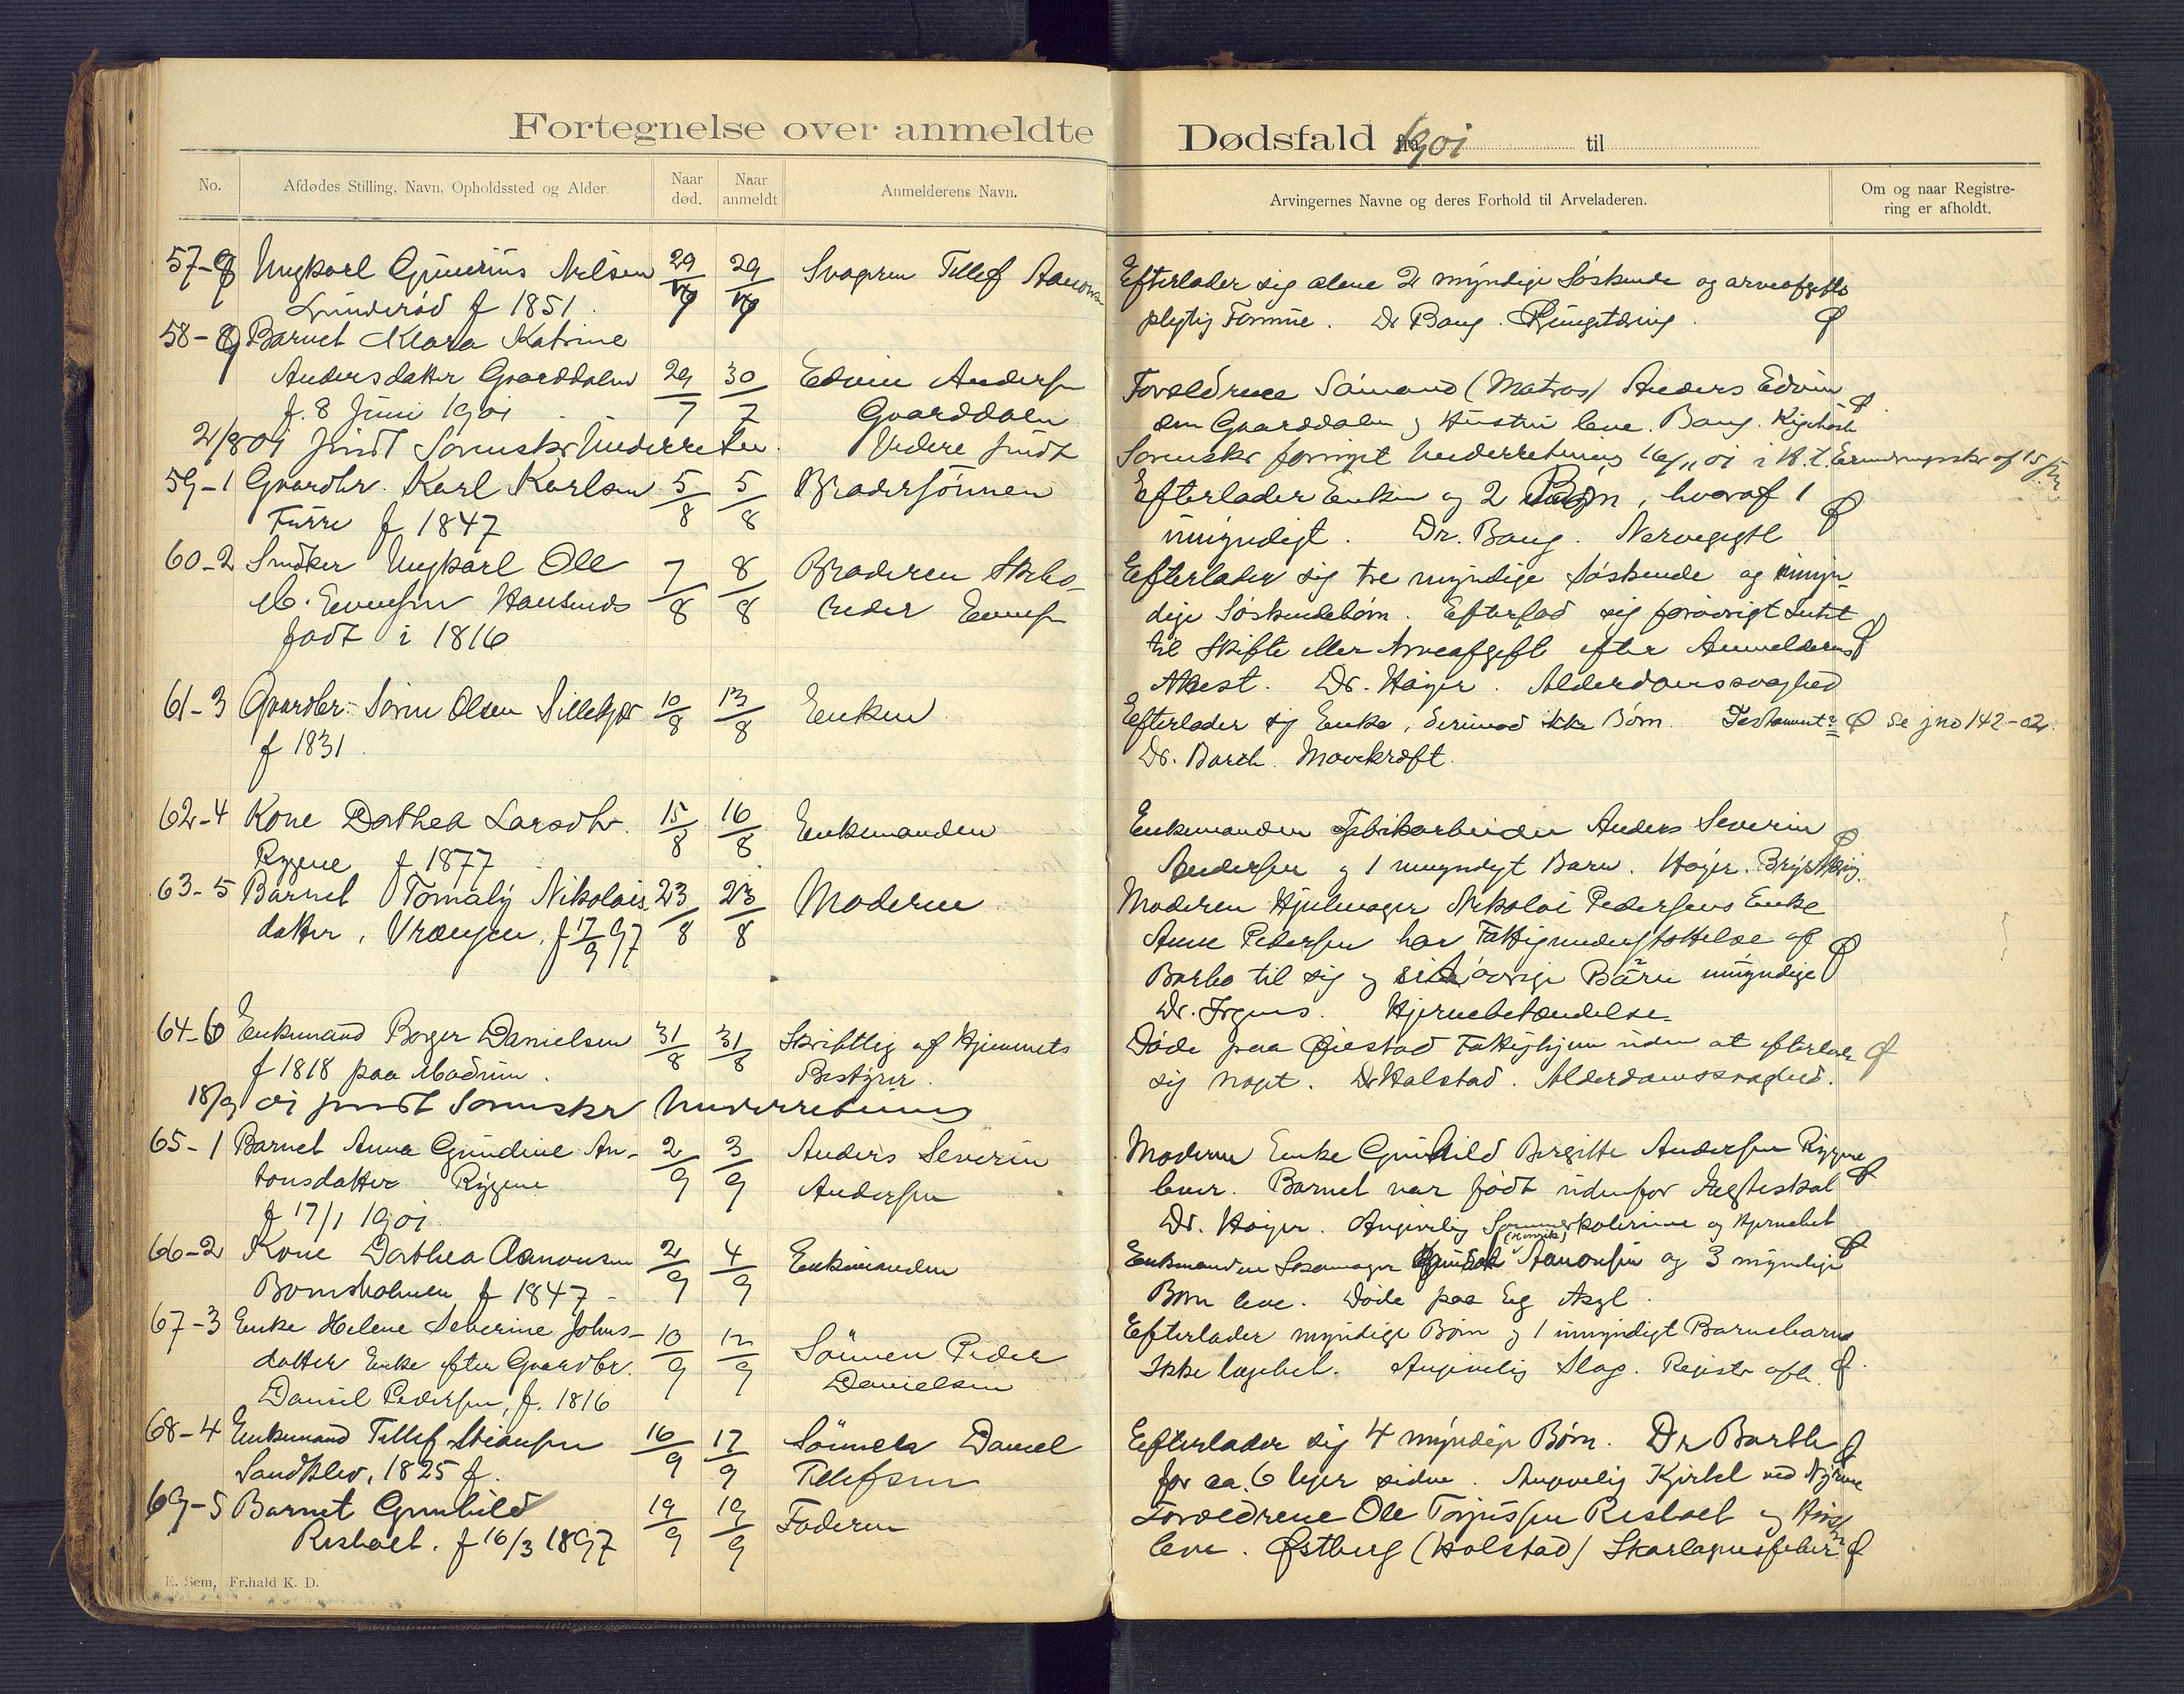 Fortegnelse over anmeldte Dødsfald fra 1901 til
No.
Afdødes Stilling, Navn, Opholdssted og Alder.
Naar død.
Naar anmeldt
Anmelderens Navn.
Arvingernes Navne og deres Forhold til Arveladeren.
Om og naar Registre-
ring er afholdt.
57-8 Ungkarl Gunerius Nilsen 29/7 29/7 Svogeren Tellef Aanons
Lunderød f 1851.
Efterlader sig alene 2 myndige Søskende og arveafgifts
pligtig Formue. Dr Bang.
58-9 Barnet Klara Katrine
Andersdatter Gaarddalen 29/7 30/7 Edvin Andersen
f. 8 Juni 1901 Gaarddalen
Forældrene Sømand (Matros) Anders Edvin
sen Gaarddalen og Hustru leve. Bang. Kighoste
2/8 01 sendt Sorenskr Underretn. Videre sendt
Sorenskr fornyet Underretning 16/11 01
59-1 Gaardbr. Karl Karlsen 5/8 5/8 Brodersønnen
Furre f 1847
Efterlader Enken og 2 Børn, hvoraf 1
umyndigt. Dr. Bang.
60-2 Snedker Ungkarl Ole 7/8 8/8 Broderen Skibs
M. Evensen
født i 1816
Efterlader sig tre myndige Søskende og umyn-
dige Søskendebørn. Efterlod sig forøvrigt Intet
til Skifte eller Arveafgift efter Anmelderens
Attest. Dr. Høyer. Alderdomssvaghed
61-3 Gaardbr. Søren Olsen 10/8 13/8 Enken
f 1831.
Efterlader sig Enke, derimod ikke Børn. Testament? se jno 142-02.
Dr. Barth. Mavekræft.
62-4 Kone Dorthea Larsdtr. 15/8 16/8 Enkemanden
Rygene f 1877
Enkemanden Fabrikarbeider Anders Severin
Andersen og 1 umyndigt Barn. Høyer.
63-5 Barnet Tomaly Nikolais 23/8 23/8 Moderen
datter, Vrængen, f 17/9 97
Moderen Hjulmager Nikolai Pedersens Enke
Anne Pedersen har Fattigunderstøttelse af
Barbo til sig og sine øvrige Børn umyndige
Dr. Irgens. Hjernebetændelse.
64-6 Enkemand Borger Danielsen 31/8 31/8 Skriftlig af Hjemmets
f 1818 paa Bestyrer.
Døde paa Øiestad Fattighjem uden at efterlade
sig noget. Dr Halstad. Alderdomssvaghed.
18/9 01 sendt Sorenskr Underretning
65-1 Barnet Anna Gundine An- 2/9 3/9 Anders Severin
tonsdatter Rygene Andersen
f 17/1 1901
Moderen Enke Gunhild Birgitte Andersen Rygene
lever. Barnet var født udenfor Ægteskab
Dr. Høyer. Angivelig Sommerkolerine og Hjernebet
66-2 Kone Dorthea Aanonsen 2/9 4/9 Enkemanden
Bomsholmen f 1847 -
Enkemanden (Henrik) Aanonsen og 3 myndige
Børn leve. Døde paa Eg Asyl.
67-3 Enke Helene Severine Johns- 10/9 12/9 Sønnen Peder
datter Enke efter Gaardbr. Danielsen
Daniel Pedersen, f. 1816
Efterlader myndige Børn og 1 umyndigt Barnebarn
Ikke lægebeh. Angivelig Slag. Registr afh.
68-4 Enkemand Tellef Stiansen 16/9 17/9 Sønnen Daniel
Sandklev, 1825 f. Tellefsen
Efterlader sig 4 myndige Børn. Dr Barth
for ca. 6 Uger siden. Angivelig Kirtel ved Nyrene
69-5 Barnet Gunhild 19/9 19/9 Faderen
Risholt. f 16/3 1897
Forældrene Ole Torjussen Risholt og Hust
leve. Østberg (Halstad) Skarlagensfeber
E. Sem, Fr.hald K. D.